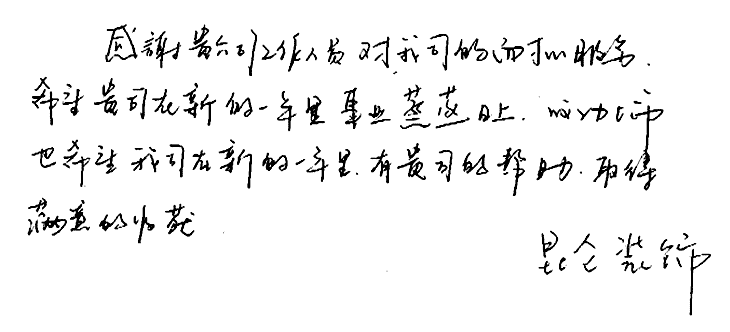 感謝贵公司工作人员对我司的耐心服务.
希望贵司在新的一年里事业蒸蒸日上.
也希望我司在新的一年里.有贵司的帮助.取得
满意的收获
昆仑装饰